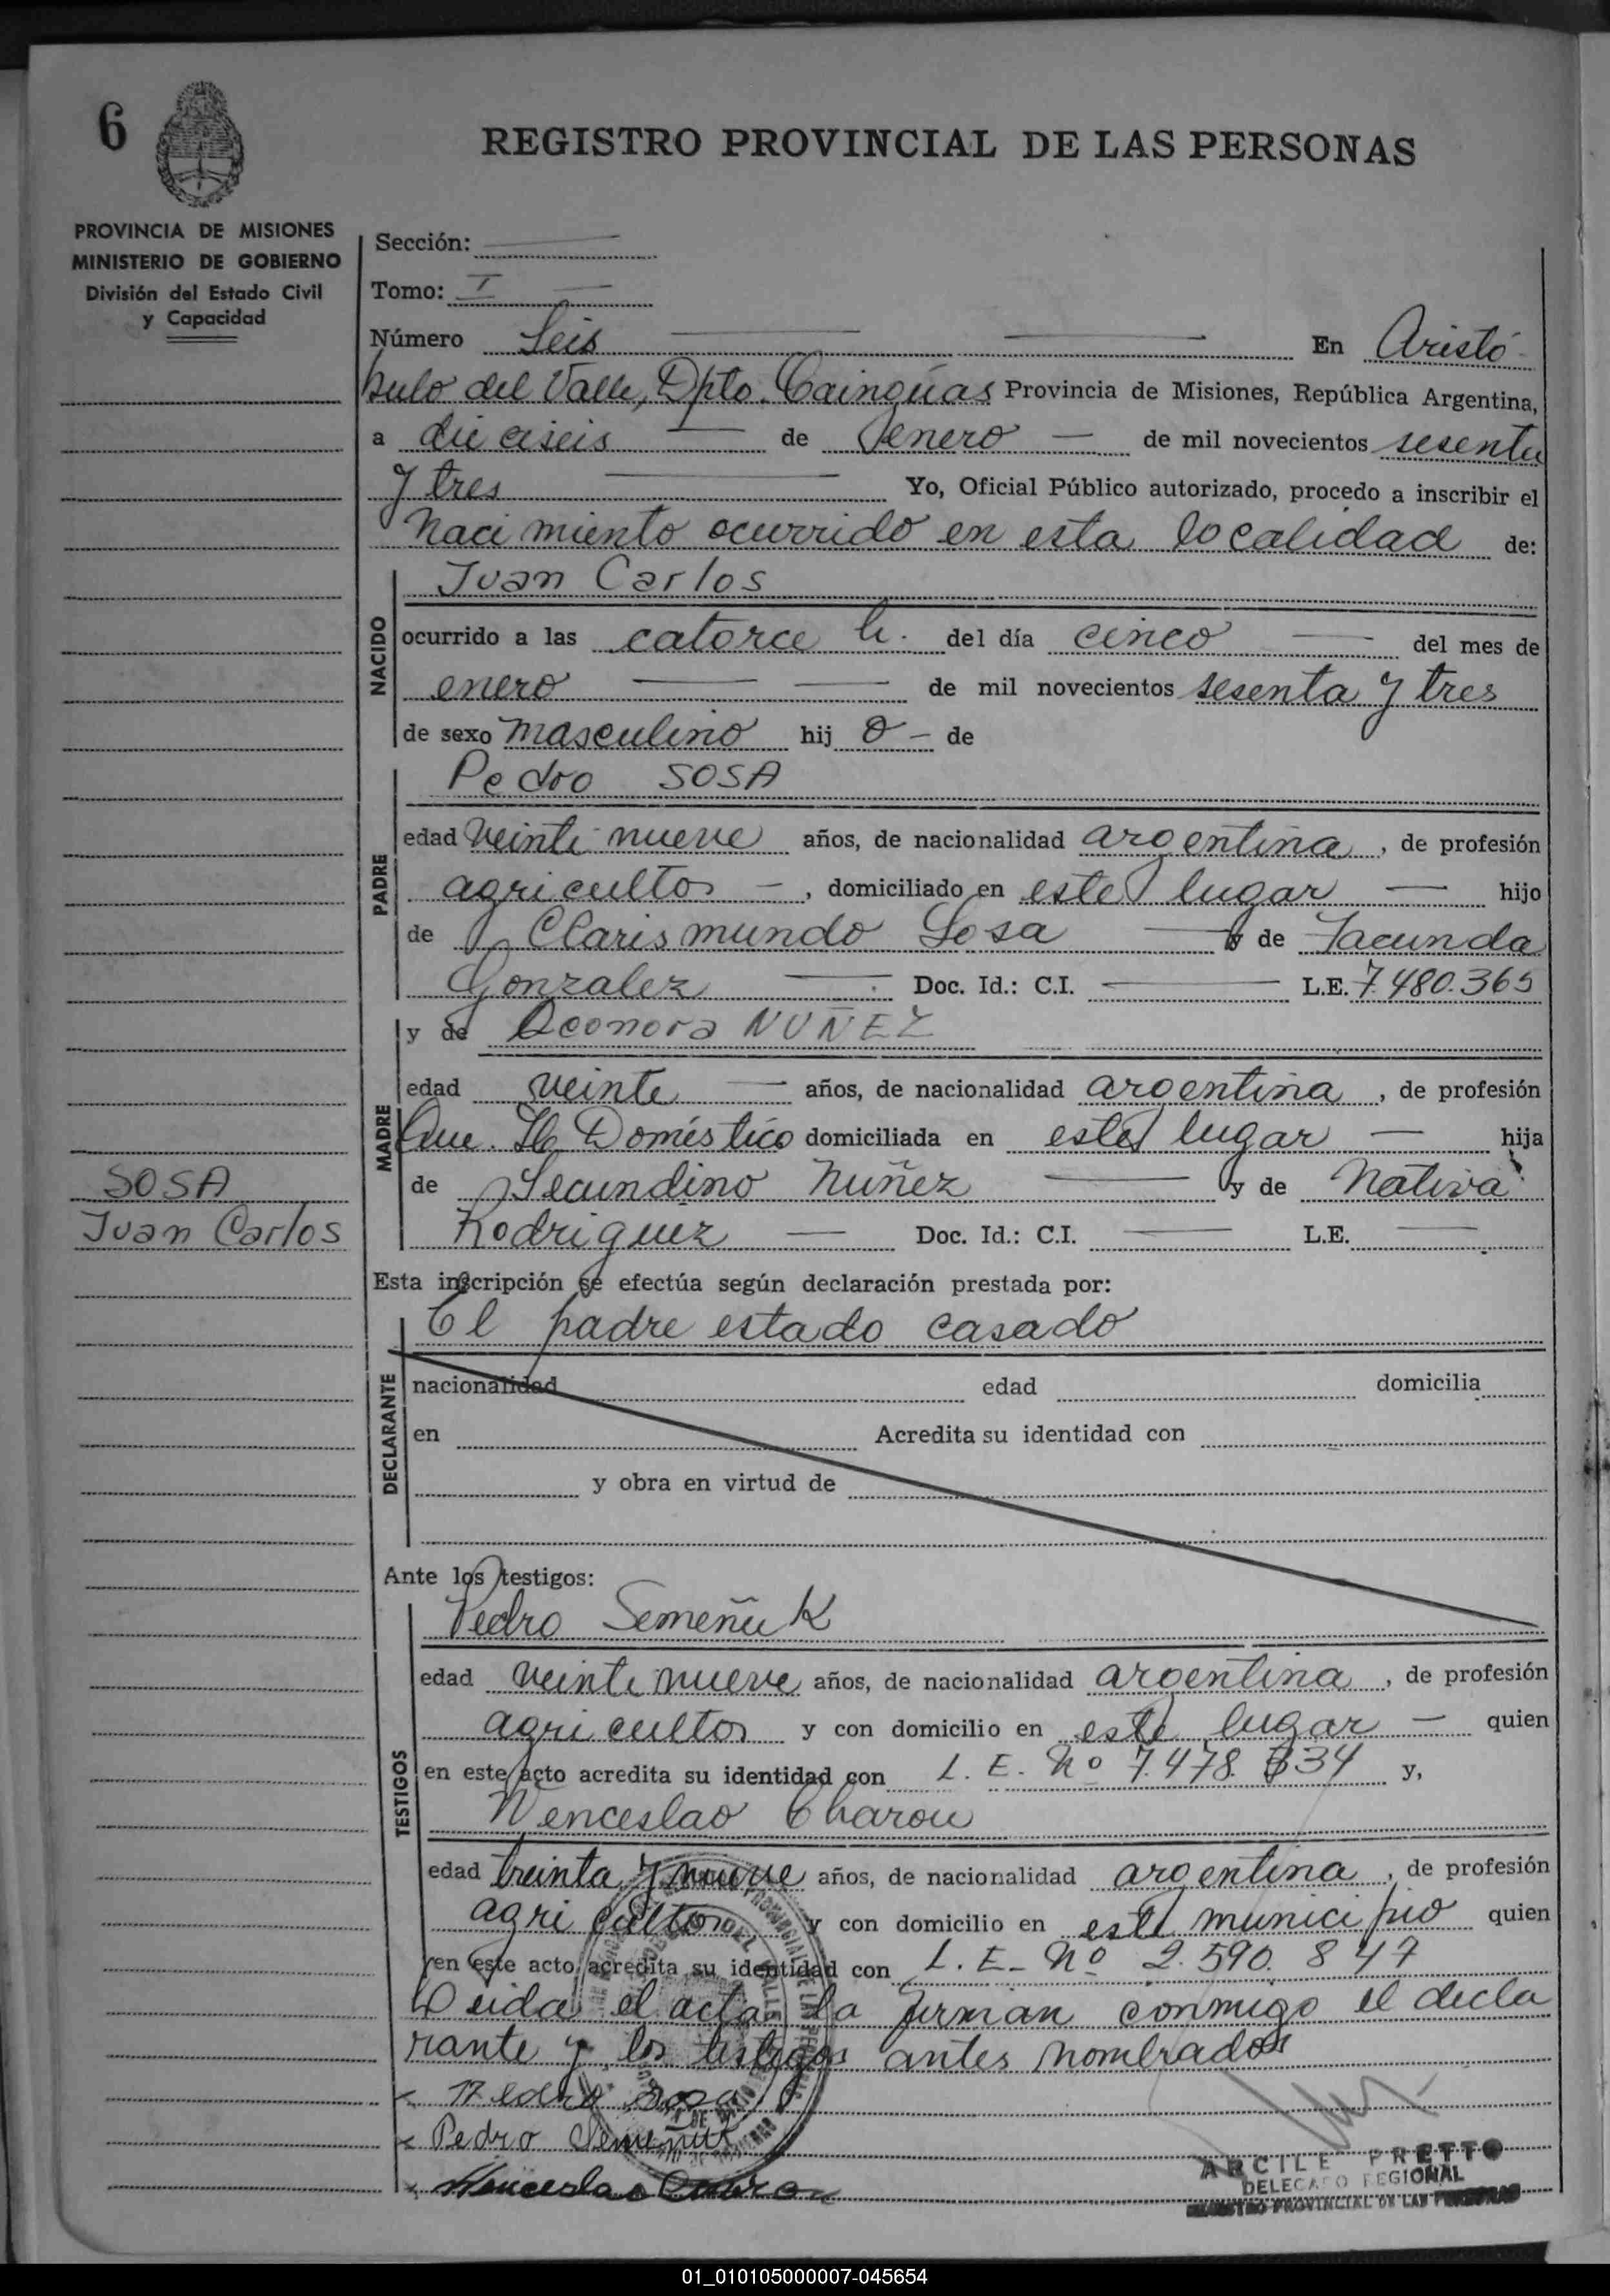 6
REGISTRO PROVINCIAL DE LAS PERSONAS
PROVINCIA DE MISIONES
MINISTERIO DE GOBIERNO
División del Estado Civil
y Capacidad
Sección:
Tomo: I
Número Seis En Aristó-
bulo del Valle, Dpto. Cainguas Provincia de Misiones, República Argentina,
a dieciseis de enero de mil novecientos sesenta
y tres Yo, Oficial Público autorizado, procedo a inscribir el
nacimiento ocurrido en esta localidad de:
NACIDO
Juan Carlos
ocurrido a las catorce h. del día cinco del mes de
enero de mil novecientos sesenta y tres
de sexo masculino hij o de
PADRE
Pedro SOSA
edad veinti nueve años, de nacionalidad argentina, de profesión
agricultor, domiciliado en este lugar hijo
de Clarismundo Sosa y de Facunda
Gonzalez Doc. Id.: C.I. L.E. 7.480.365
MADRE
y de Leonora NUÑEZ
edad veinte años, de nacionalidad argentina, de profesión
Que. H. Doméstico domiciliada en este lugar hija
de Secundino Nuñez y de Nativa
Rodriguez Doc. Id.: C.I. L.E.
SOSA
Juan Carlos
Esta inscripción se efectúa según declaración prestada por:
DECLARANTE
El padre estado casado
nacionalidad edad domicilia
en Acredita su identidad con
y obra en virtud de
Ante los testigos:
TESTIGOS
Pedro Semeñuk
edad veinti nueve años, de nacionalidad argentina, de profesión
agricultor y con domicilio en este lugar quien
en este acto acredita su identidad con L. E. Nº 7.478.334 y,
Wenceslao Charou
edad treinta y nueve años, de nacionalidad argentina, de profesión
agricultor y con domicilio en este municipio quien
en este acto acredita su identidad con L. E. Nº 2.590.847
Leida el acta la firman conmigo el decla
rante y los testigos antes nombrados
Pedro Sosa
Pedro Semenuk
Wenceslao
ARCILE PRETTO
DELEGADO REGIONAL
REGISTRO PROVINCIAL DE LAS PERSONAS
01_010105000007-045654